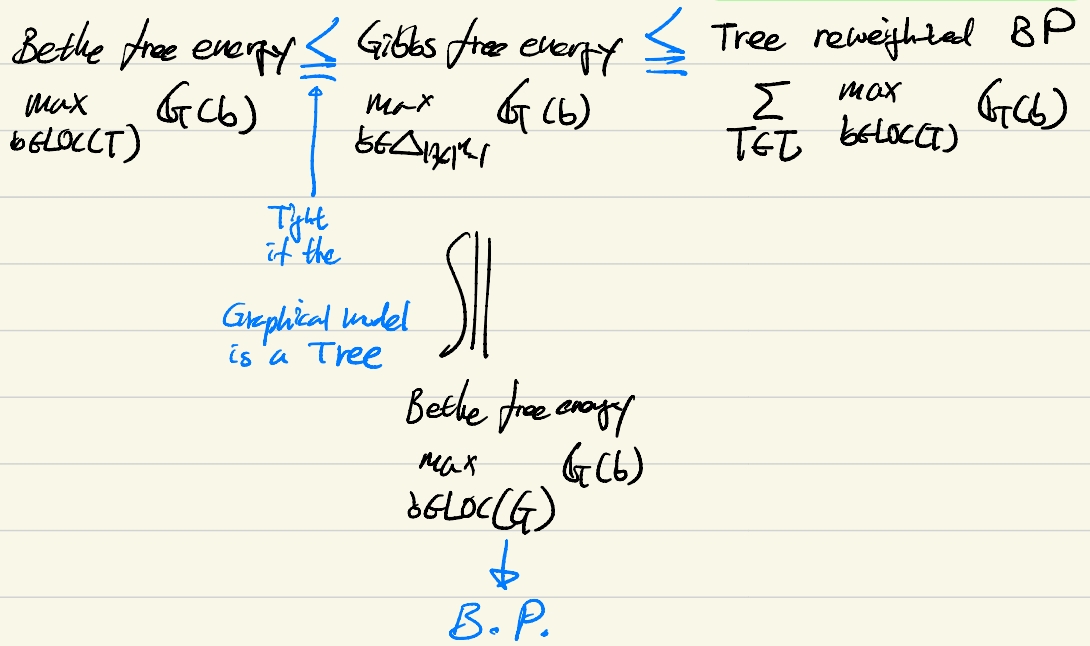 Bethe free energy ≤ Gibbs free energy ≤ Tree reweighted BP
max G(b) max G(b) Σ max G(b)
b∈LOC(T) b∈Δ|X|^n-1 T∈T b∈LOC(T)
Tight
if the
Graphical model
is a Tree
Bethe free energy
max G(b)
b∈LOC(G)
B.P.